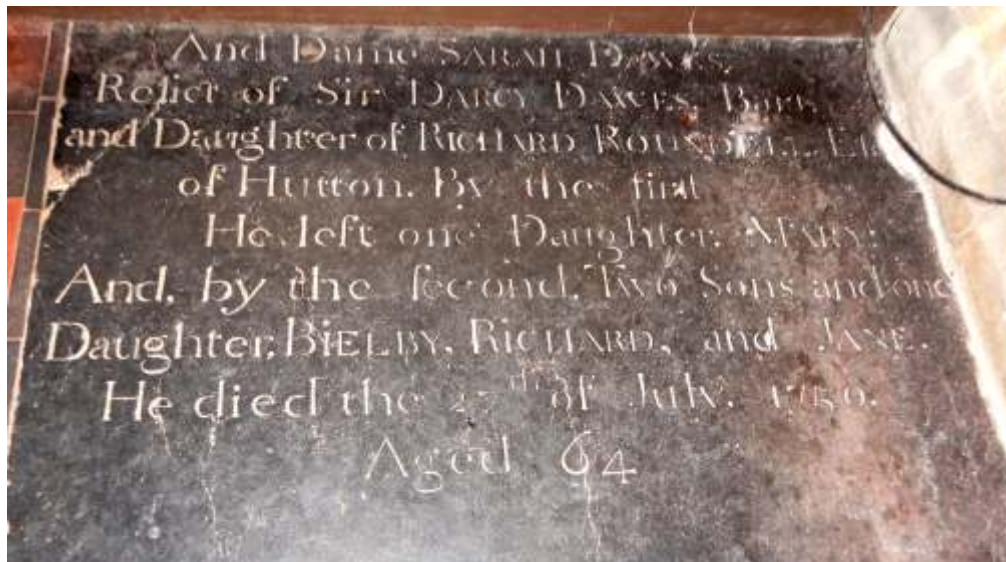 And Dame SARAH DAWES,
Relict of Sir DARCY DAWES, Bart
and Daughter of RICHARD ROUNDELL, 
of Hutton. By the first
He left one Daughter, MARY:
And, by the second, Two Sons and one
Daughter, BIELBY, RICHARD, and JANE.
He died the 27th of July, 1750.
Aged 64